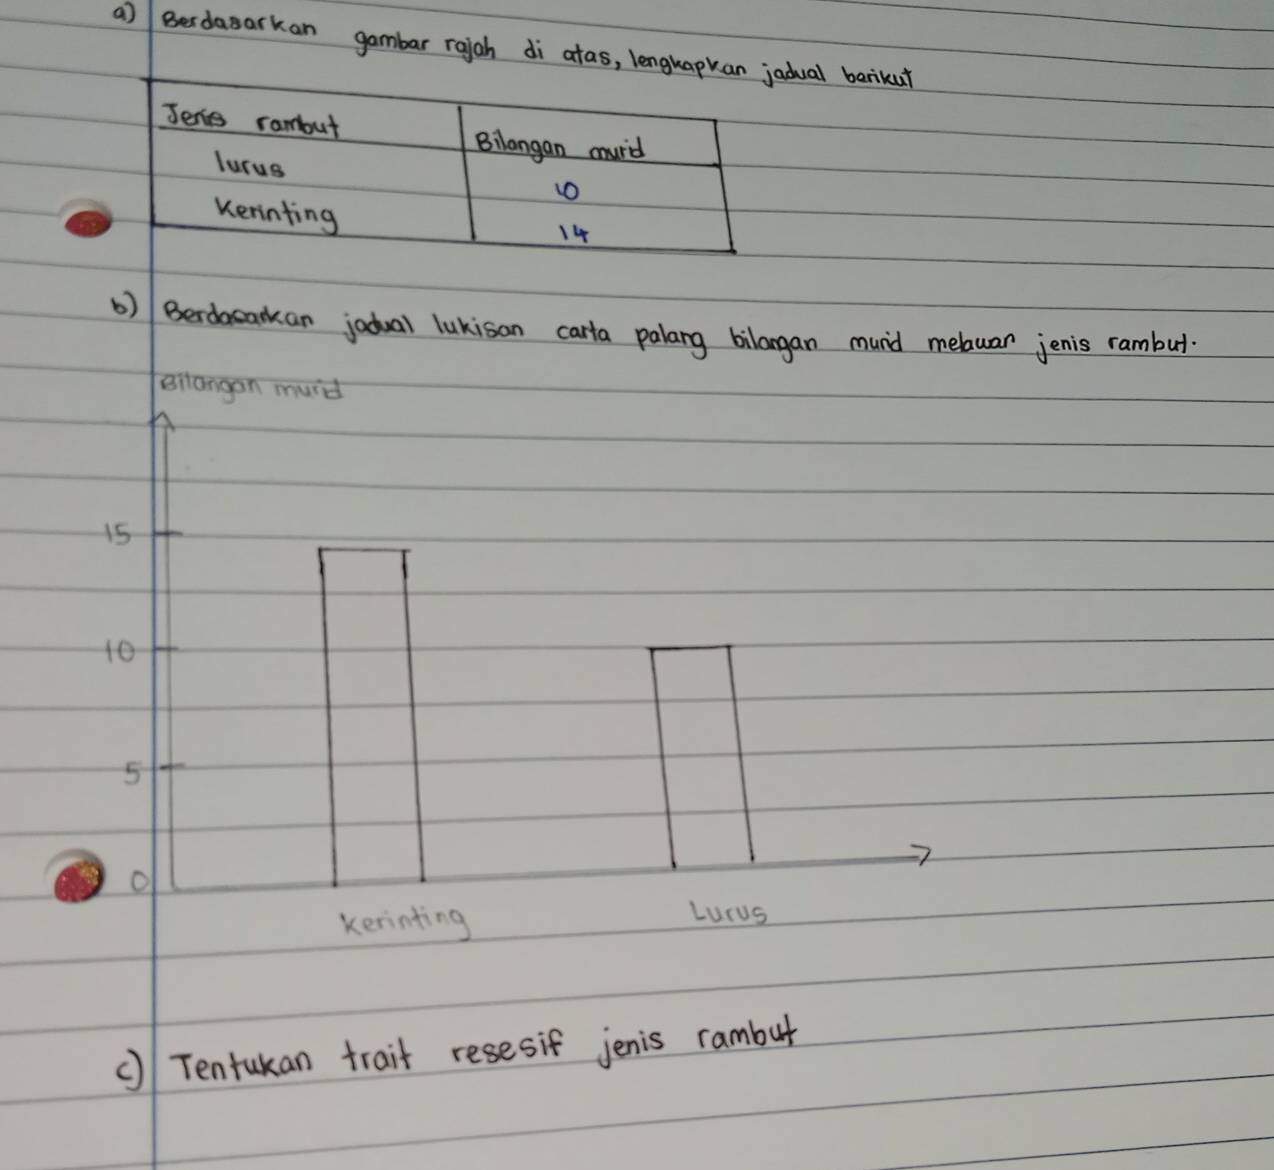 a) Berdasarkan gambar rajah di atas, lengkapkan jadual barikut
Jenis rambut Bilangan murid
lurus 10
Kerinting 14
b) Berdasarkan jadual lukisan carta palang bilangan murid melawan jenis rambut.
Bilangan murid
15
10
5
0
Kerinting Lurus
c) Tentukan trait resesif jenis rambut